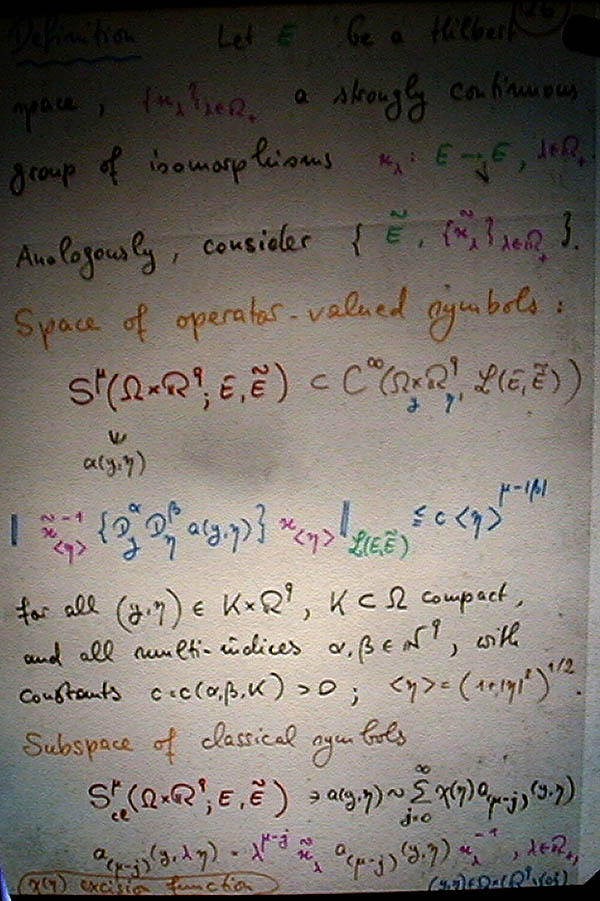 26
Definition Let E be a Hilbert
space, {ϰ_λ}_{λ∈ℝ₊} a strongly continuous
group of isomorphisms ϰ_λ : E → E, λ∈ℝ₊.
Analogously, consider {Ẽ, {ϰ̃_λ}_{λ∈ℝ₊}}.
Space of operator-valued symbols :
S^μ(Ω×ℝ^q; E, Ẽ) ⊂ C^∞(Ω_y×ℝ^q_η, ℒ(E,Ẽ))
∪
a(y,η)
‖ ϰ̃^{-1}_{<η>} {D_y^α D_η^β a(y,η)} ϰ_{<η>} ‖_{ℒ(E,Ẽ)} ≦ c <η>^{μ-|β|}
for all (y,η) ∈ K×ℝ^q, K ⊂ Ω compact,
and all multi-indices α, β ∈ ℕ^q, with
constants c=c(α,β,K) > 0 ; <η> = (1+|η|²)^{1/2}.
Subspace of classical symbols
S^μ_{cl}(Ω×ℝ^q; E, Ẽ) ∋ a(y,η) ~ Σ_{j=0}^∞ χ(η) a_{(μ-j)}(y,η)
a_{(μ-j)}(y,λη) = λ^{μ-j} ϰ̃_λ a_{(μ-j)}(y,η) ϰ_λ^{-1}, λ∈ℝ₊,
χ(η) excision function (y,η)∈Ω×(ℝ^q\{0})